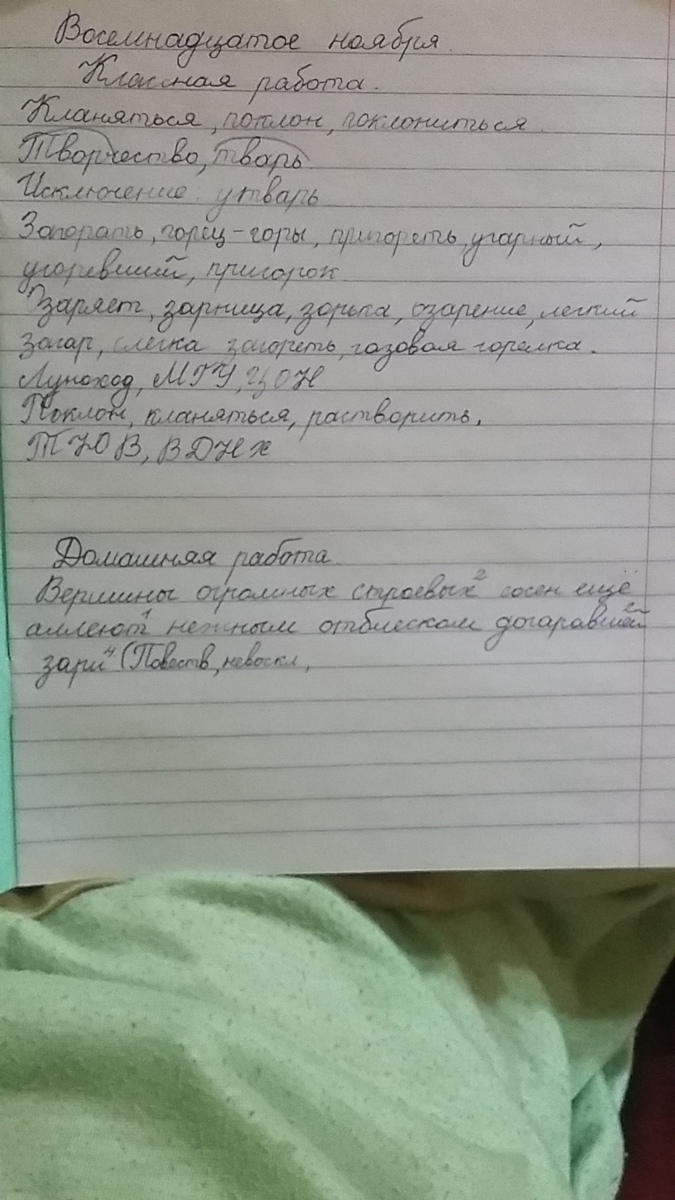 Восемнадцатое ноября.
Классная работа.
Кланяться, поклон, поклониться.
Творчество, тварь
Исключение: утварь
Загорать, горец-горы, пригореть, угарный,
угоревший, пригорок
Озаряет, зарница, зорька, озарение, легкий
загар, слегка загореть, газовая горелка.
Луноход, МГУ, ЦОН
Поклон, кланяться, растворить,
ТЮВ, ВДНХ
Домашняя работа
Вершины огромных строевых² сосен ещё
аллеют¹ нежным отблеском догаравшей
зари⁴ (Повеств, невоскл,